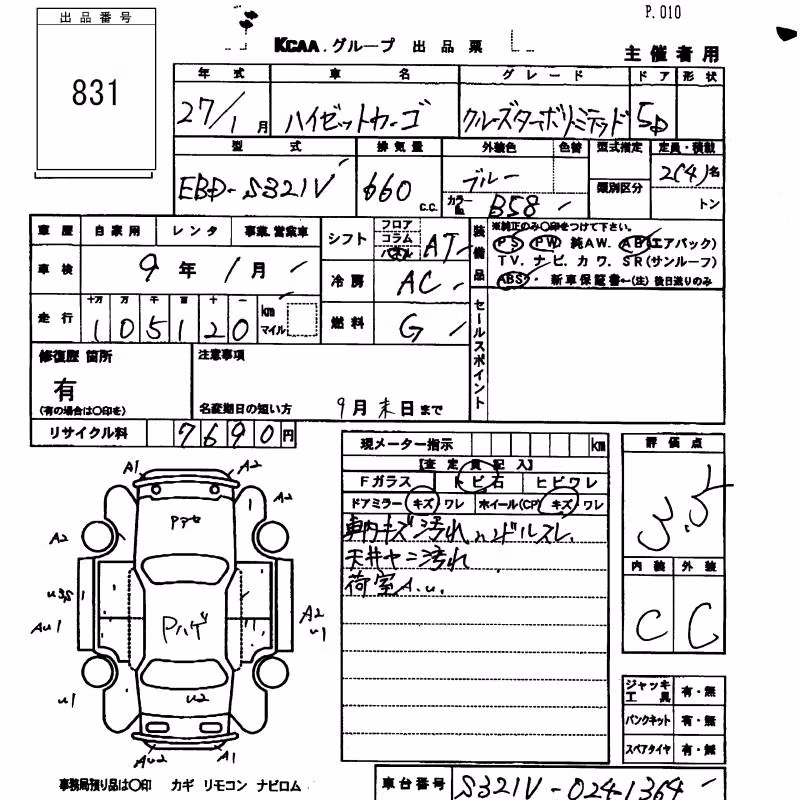 P.010
出品番号
831
KCAA.グループ 出品票
主催者用
年式 車名 グレード ドア 形状
27/1月 ハイゼットカーゴ クルーズターボリミテッド 5D
型式 排気量 外装色 色替 型式指定 定員・積載
EBD-S321V 660 c.c. ブルー 類別区分 2(4)名
カラーNo. B58 トン
車歴 自家用 レンタ 事業.営業車
シフト フロア コラム パネル AT
装備品 ※純正のみ〇印をつけて下さい。
PS PW 純AW. AB(エアバック)
TV. ナビ. カワ. SR(サンルーフ)
ABS・ 新車保証書←(注)後日送りのみ
車検 9年1月
冷房 AC
走行 十万 万 千 百 十 一 km マイル
105120
燃料 G
セールスポイント
修復歴 箇所
有
(有の場合は〇印を)
注意事項
名変期日の短い方 9月末日まで
リサイクル料 7690円
現メーター指示 km
【査定員記入】
Fガラス トビ石 ヒビワレ
ドアミラー キズ ワレ ホイール(CP) キズ ワレ
車内キズ汚れ ハンドルスレ
天井ヤニ汚れ
荷室A.u.
評価点
3.5
内装 外装
C C
A1 A2
Pアセ
A2
A2
1
u3s1
Au1
Pハゲ
A2
u1
u1
u2
Au2 A1
ジャッキ工具 有・無
パンクキット 有・無
スペアタイヤ 有・無
事務局預り品は〇印 カギ リモコン ナビロム
車台番号 S321V-0241364